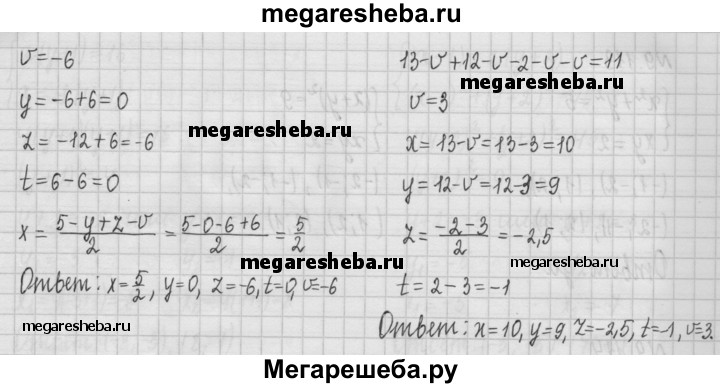 megaresheba.ru
v=-6
y=-6+6=0
z=-12+6=-6
t=6-6=0
x=\frac{5-y+z-v}{2}=\frac{5-0-6+6}{2}=\frac{5}{2}
Ответ: x=\frac{5}{2}, y=0, z=-6, t=0, v=-6
13-v+12-v-2-v-v=11
v=3
x=13-v=13-3=10
y=12-v=12-3=9
z=\frac{-2-3}{2}=-2,5
t=2-3=-1
Ответ: x=10, y=9, z=-2,5, t=-1, v=3.
megaresheba.ru
megaresheba.ru
megaresheba.ru
megaresheba.ru
megaresheba.ru
Мегарешеба.ру